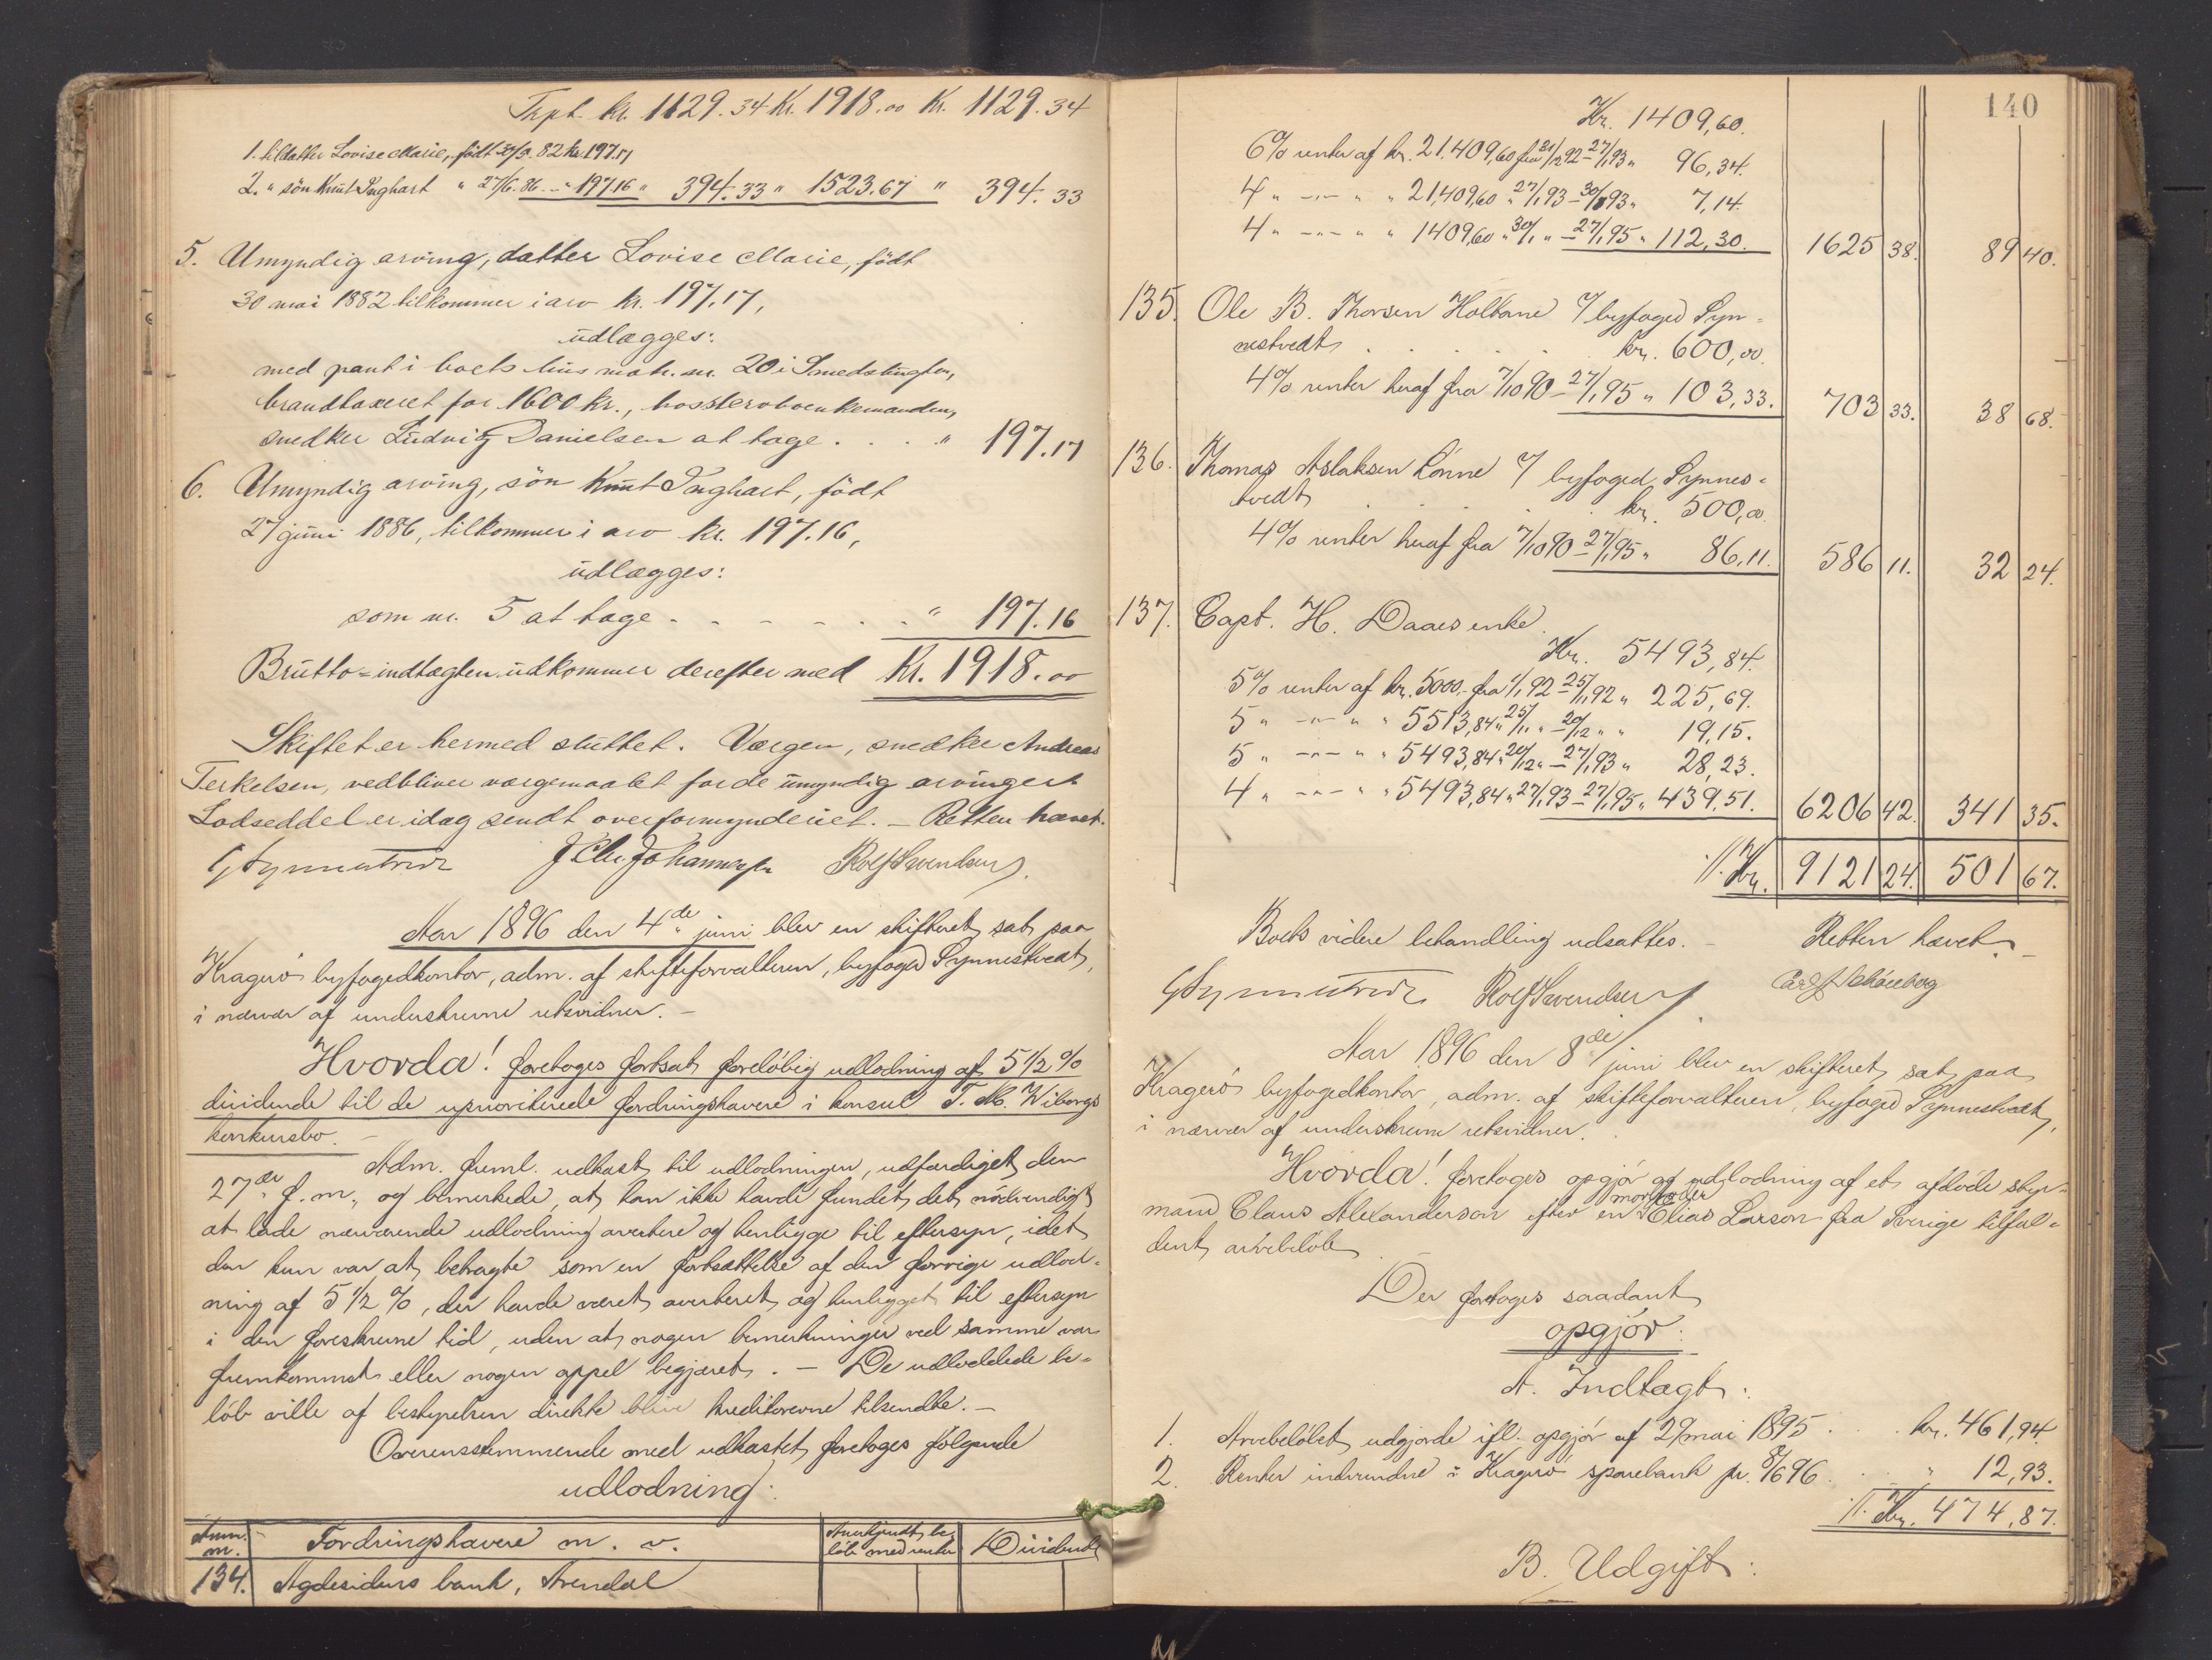 Trpt. kr. 1129.34 Kr. 1918.00 Kr. 1129.34
1. til datter Lovise Marie, født 30/5. 82 kr. 197.17
2. " søn Knut Inghart " 27/6. 86 - " 197.16 " 394.33 " 1523.67 " 394.33
5. Umyndig arving, datter Lovise Marie, født
30 mai 1882 tilkommer i arv kr. 197.17,
udlægges:
med pant i boets hus matr. nr. 20 i Smedsbugten,
brandtaxeret for 1600 kr., hos stervboenkemanden,
snedker Ludvig Danielsen at tage . . . . " 197.17
6. Umyndig arving, søn Knut Inghart, født
27 juni 1886, tilkommer i arv kr. 197.16,
udlægges:
som nr. 5 at tage - - - - - - " 197.16
Brutto-indtægten udkommer derefter med Kr. 1918.00
Skiftet er hermed sluttet. Værgen, snedker Andreas
Terkelsen, vedbliver værgemaalet for de umyndig arvinger
Lodseddel er idag sendt overformynderiet. - Retten hævet.
Rolf Svendsen.
Aar 1896 den 4de juni blev en skifteret sat paa
Kragerø byfogedkontor, adm. af skifteforvalteren, byfoged Synnestvedt,
i nærvær af underskrevne retsvidner. -
Hvorda! foretoges fortsat foreløbig udlodning af 5 1/2 %
dividende til de uprioriterede fordringshavere i konsul T. M. Wiborgs
konkursbo. -
Adm. freml. udkast til udlodningen, udfærdiget den
27de f.m., og bemerkede, at han ikke havde fundet det nødvendigt
at lade nærværende udlodning avertere og henligge til eftersyn, idet
den kun var at betragte som en fortsættelse af den forrige udlod-
ning af 5 1/2 %, der havde været averteret og henligget til eftersyn
i den foreskrevne tid, uden at nogen bemerkninger ved samme var
fremkommet eller nogen appel begjæret. - De udloddede be-
løb ville af bestyrelsen direkte blive kreditorerne tilsendte. -
Overensstemmende med udkastet foretoges følgende
udlodning:
Anm. nr. Fordringshavere m. v. Anerkjendt be- løb med renter Dividende
134. Agdesidens bank, Arendal
140
Kr. 1409,60.
6% renter af kr. 21,409,60 fra 31/12 92 - 27/1 93 " 96,34.
4 " - " - " " 21,409,60 " 27/1 93 - 30/1 93 " 7,14.
4 " - " - " " 1409,60 " 30/1 " - 27/1 95 " 112,30. 1625 38. 89 40.
135. Ole B. Thorsen Holtane v/ byfoged Syn-
nestvedt . . . . . kr. 600,00.
4% renter heraf fra 7/10 90 - 27/1 95 " 103,33. 703 33. 38 68.
136. Thomas Aslaksen Lønne v/ byfoged Synnes-
tvedt . . . . . kr. 500,00.
4% renter heraf fra 7/10 90 - 27/1 95 " 86,11. 586 11. 32 24.
137. Capt. H. Daaes enke.
Kr. 5493,84.
5% renter af kr. 5000,- fra 1/1 92 - 25/11 92 " 225,69.
5 " - " - " " 5513,84 " 25/11 " - 20/12 " " 19,15.
5 " - " - " " 5493,84 " 20/12 " - 27/1 93 " 28,23.
4 " - " - " " 5493,84 " 27/1 93 - 27/1 95 " 439,51. 6206 42. 341 35.
·/. Kr. 9121 24. 501 67.
Boets videre behandling udsattes. - Retten hævet. -
Rolf Svendsen Carl Schönberg
Aar 1896 den 8de juni blev en skifteret sat paa
Kragerø byfogedkontor, adm. af skifteforvalteren, byfoged Synnestvedt,
i nærvær af underskrevne retsvidner.
Hvorda! foretoges opgjør og udlodning af et afdøde styr-
mand Claus Alexanderson efter en morbroder Elias Larson fra Sverige tilfal-
dent arvebeløb
Der foretoges saadant
opgjør:
A. Indtægt:
1. Arvebeløbet udgjorde ifl. opgjør af 29 mai 1895 . . . kr. 461,94.
2. Renter indvundne i Kragerø sparebank pr. 8/6 96 . . . " 12,93.
·/. Kr. 474,87.
B. Udgift: